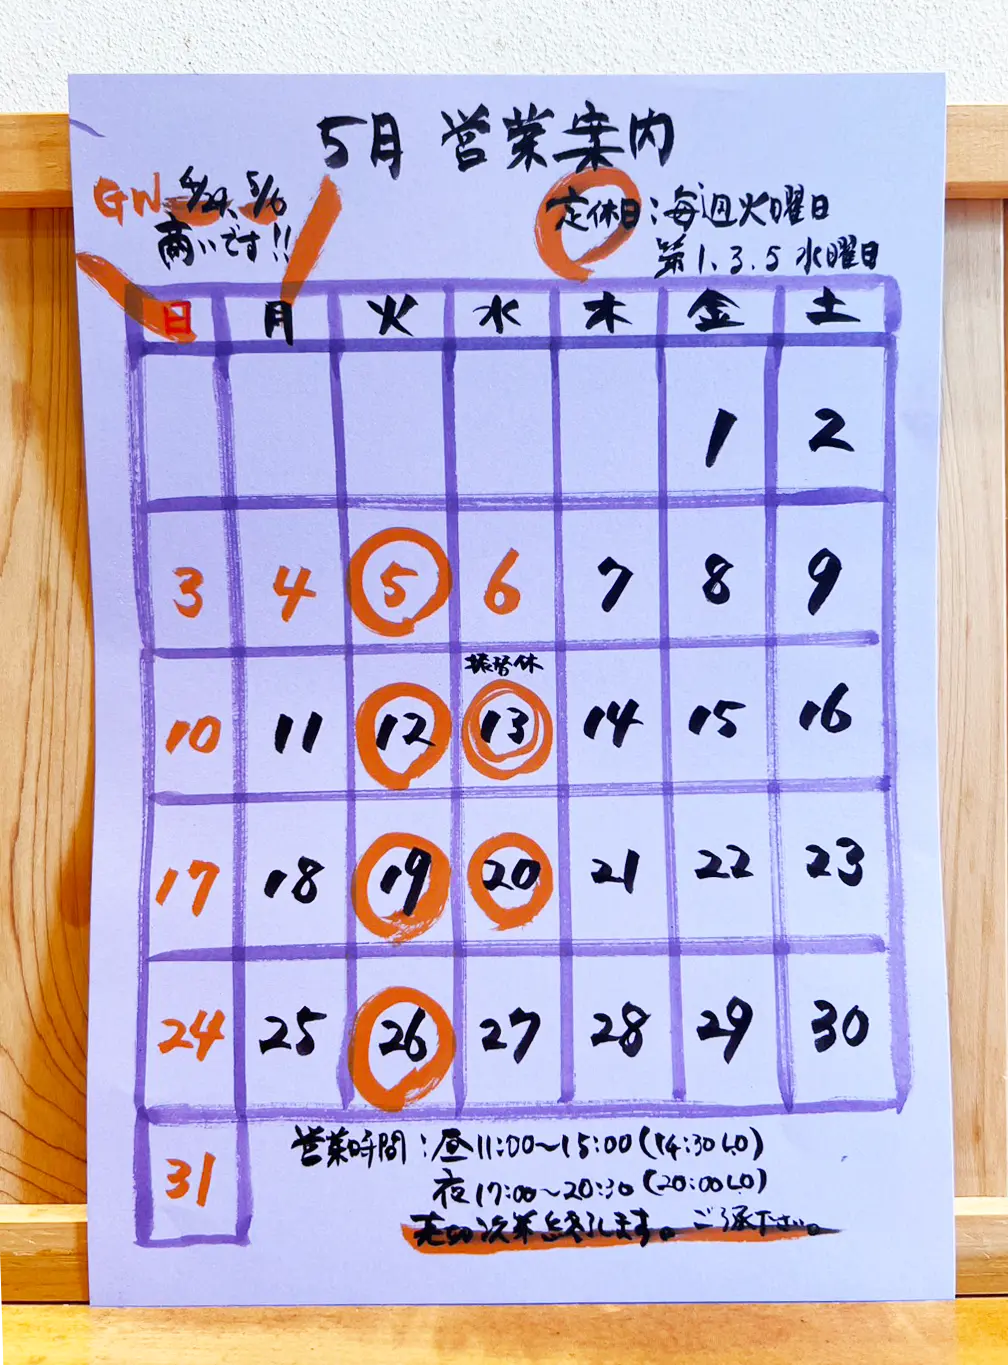 5月 営業案内
GW 4/29、5/6
商いです!!
定休日：毎週火曜日
第1.3.5水曜日
日 月 火 水 木 金 土
1 2
3 4 5 6 7 8 9
振替休
10 11 12 13 14 15 16
17 18 19 20 21 22 23
24 25 26 27 28 29 30
31
営業時間：昼11:00～15:00(14:30LO)
夜17:00～20:30(20:00LO)
売切次第終了します。ご了承下さい。